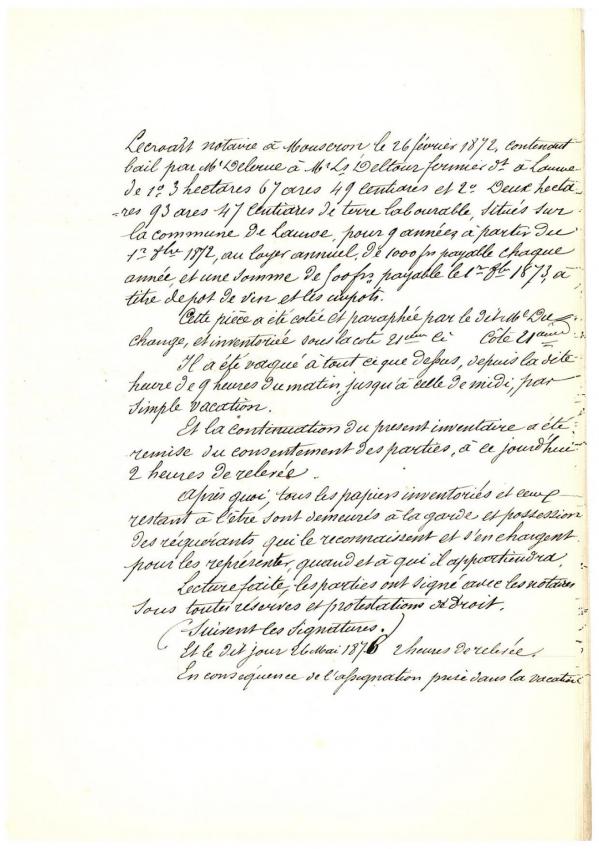 Lecroart notaire à Mouscron le 26 février 1872, contenant
bail par Mr Delerue à Mr Ls Deltour fermier dt à Lauwe
de 1o 3 hectares 67 ares 49 centiares et 2o Deux hecta
=res 93 ares 47 centiares de terre labourable, situés sur
la commune de Lauwe, pour 9 années à partir du
1er 8bre 1872, au loyer annuel, de 1000 frs payable chaque
année, et une somme de 500 frs payable le 1er 8bre 1873, à
titre de pot de vin et les impots.
Cette pièce a été cotée et paraphée par le dit Me Du
change, et inventoriée sous la cote 21eme ci Côte 21eme
Il a été vaqué à tout ci que dessus, depuis la dite
heure de 9 heures du matin jusqu'à celle de midi, par
simple vacation.
Et la continuation du present inventaire a été
remise du consentement des parties, à ce jourd'hui
2 heures de relevée.
Après quoi, tous les papiers inventoriés et ceux
restant à l'être sont demeurés à la garde et possession
des réquerants qui le reconnaissent et s'en chargent
pour les représenter, quand et à qui il appartiendra.
Lecture faite, les parties ont signé avec les notaires
sous toutes réserves et protestations de Droit.
(Suivent les signatures.)
Et le dit jour 26 Mai 1876 2 heures de relevée.
En conséquence de l'assignation prise dans la vacation